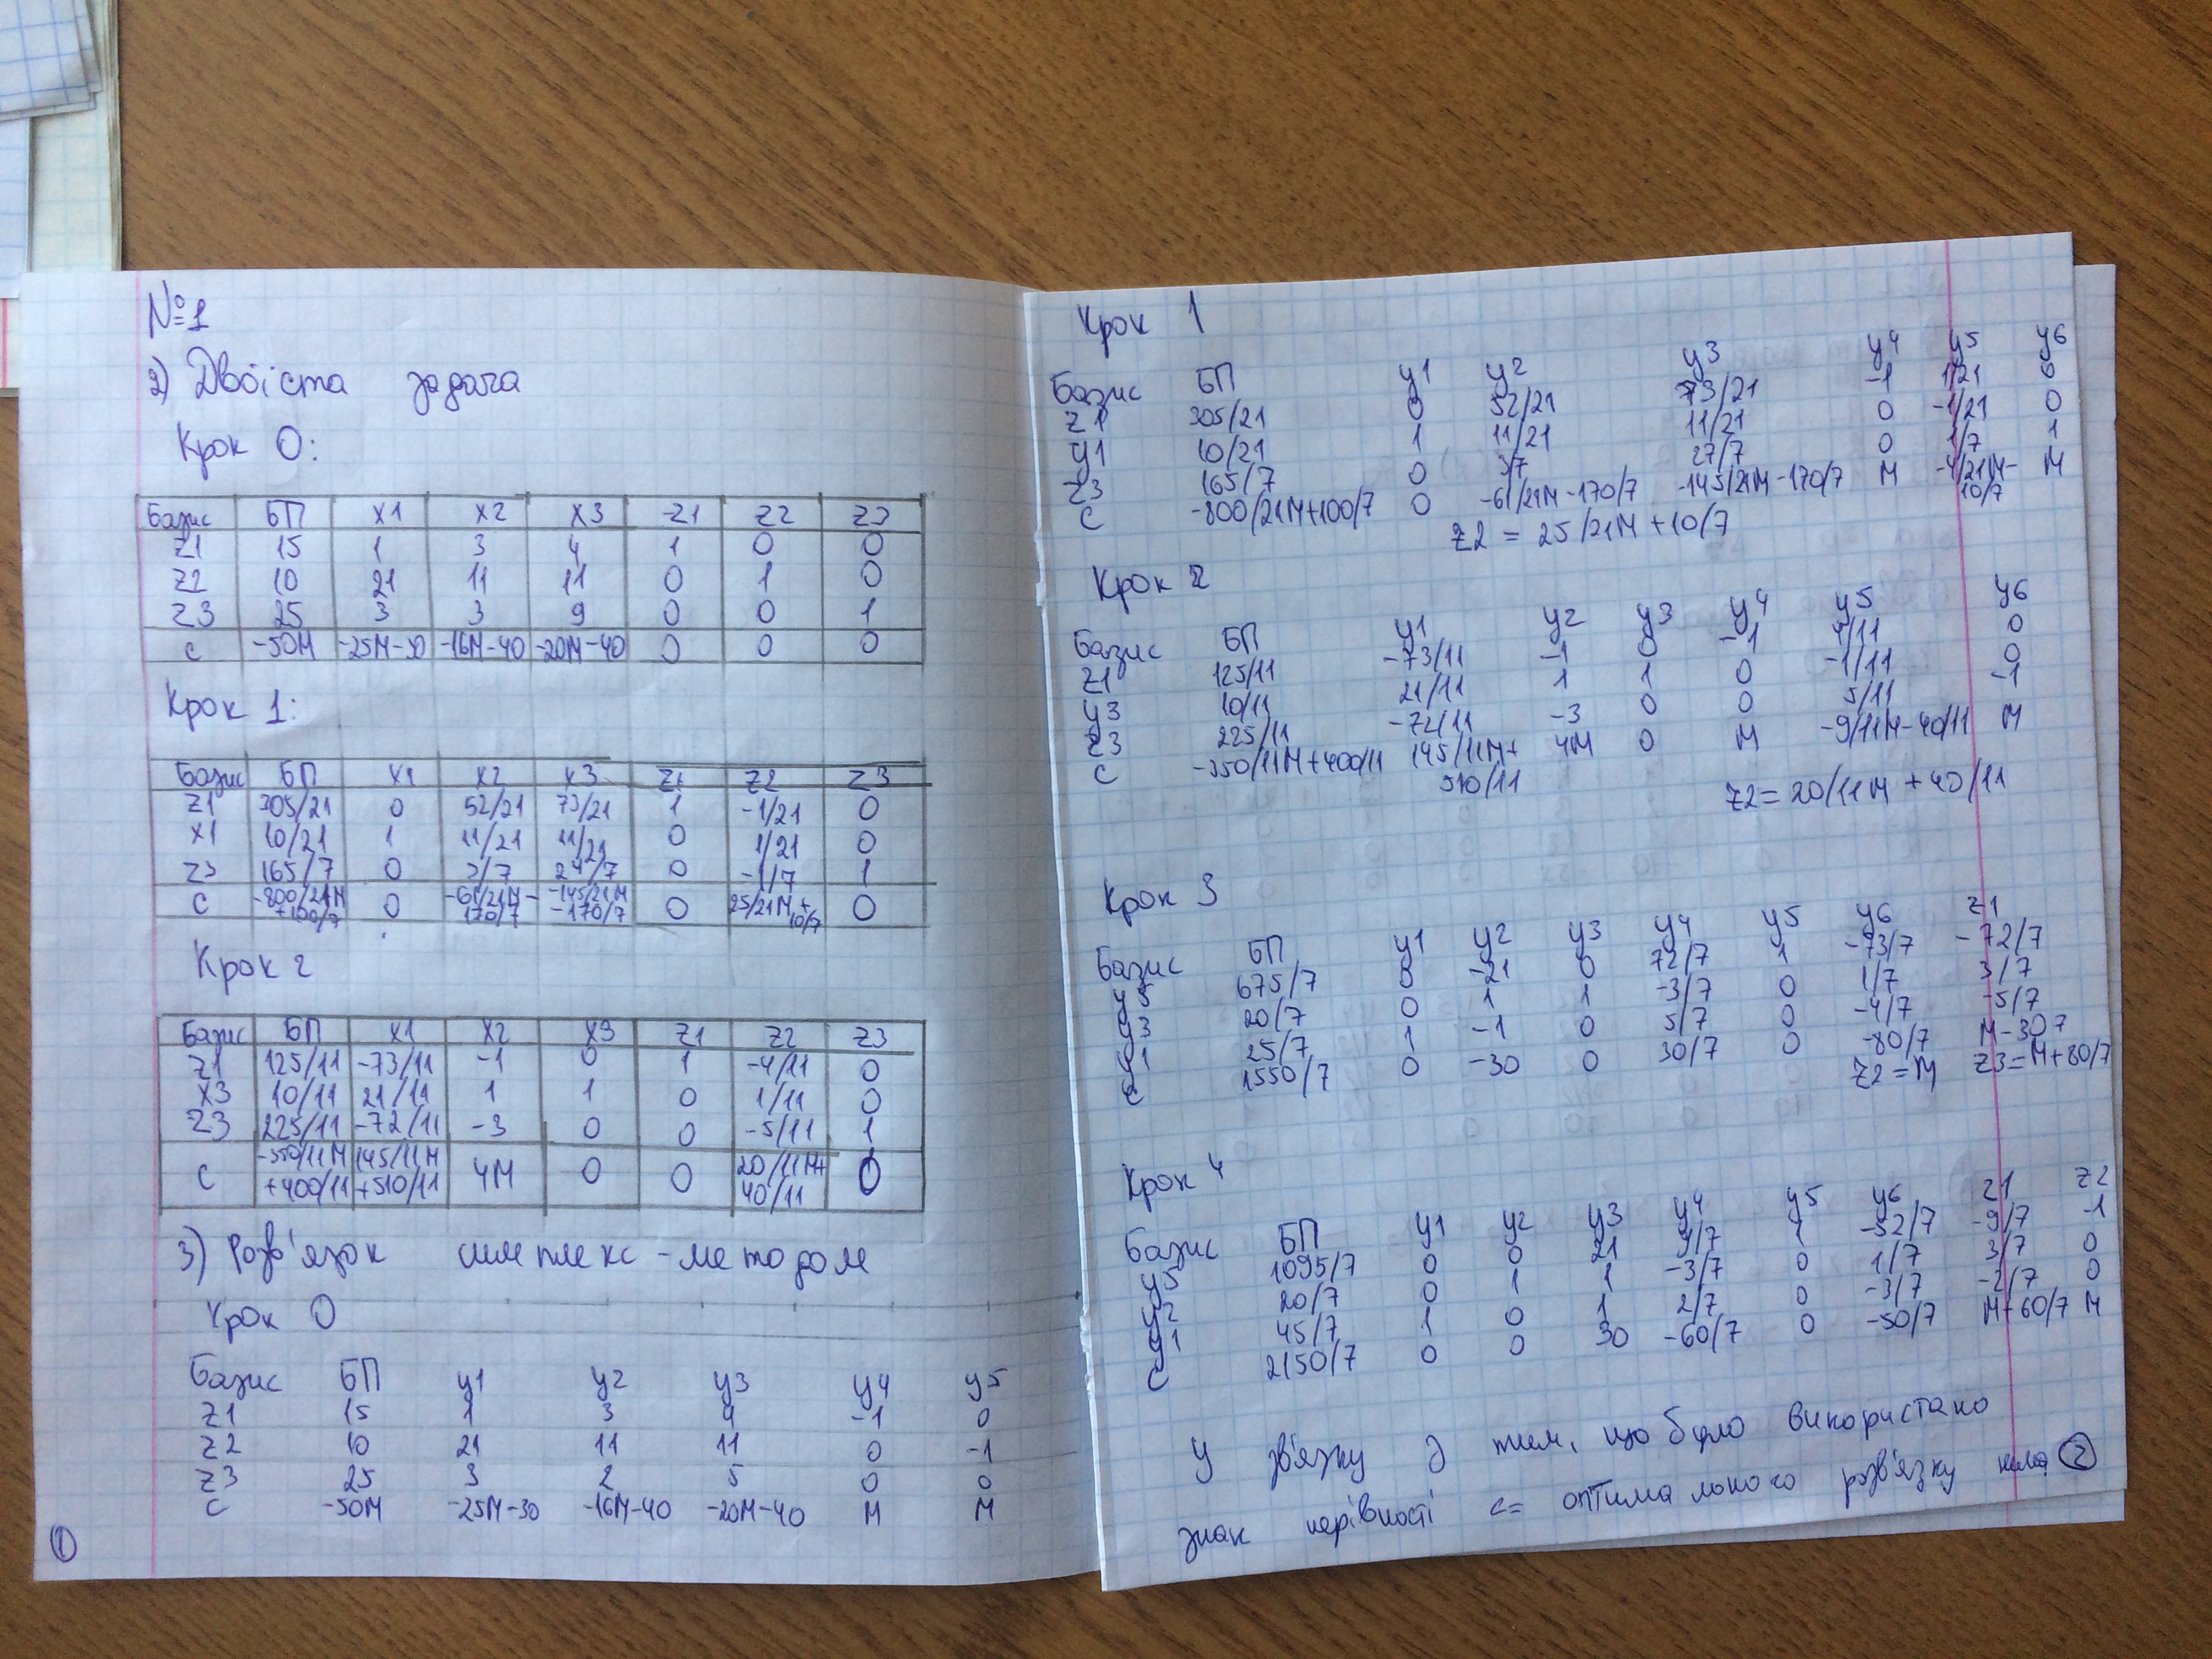 №1
2) Двоїста задача
Крок 0:
Базис БП x1 x2 x3 z1 z2 z3
z1 15 1 3 4 1 0 0
z2 10 21 11 11 0 1 0
z3 25 3 3 9 0 0 1
c -50M -25M-30 -16M-40 -20M-40 0 0 0
Крок 1:
Базис БП x1 x2 x3 z1 z2 z3
z1 305/21 0 52/21 73/21 1 -1/21 0
x1 10/21 1 11/21 11/21 0 1/21 0
z3 165/7 0 3/7 24/7 0 -1/7 1
c -800/21M+100/7 0 -61/21M-170/7 -145/21M-170/7 0 25/21M+10/7 0
Крок 2
Базис БП x1 x2 x3 z1 z2 z3
z1 125/11 -73/11 -1 0 1 -4/11 0
x3 10/11 21/11 1 1 0 1/11 0
z3 225/11 -72/11 -3 0 0 -5/11 1
c -350/11M+400/11 145/11M+510/11 4M 0 0 20/11M+40/11 0
3) Розв'язок симплекс-методом
Крок 0
Базис БП y1 y2 y3 y4 y5
z1 15 1 3 4 -1 0
z2 10 21 11 11 0 -1
z3 25 3 2 5 0 0
c -50M -25M-30 -16M-40 -20M-40 M M
1
Крок 1
Базис БП y1 y2 y3 y4 y5 y6
z1 305/21 0 52/21 73/21 -1 1/21 0
y1 10/21 1 11/21 11/21 0 -1/21 0
z3 165/7 0 3/7 27/7 0 1/7 1
c -800/21M+100/7 0 -61/21M-170/7 -145/21M-170/7 M -4/21M-10/7 M
z2 = 25/21M+10/7
Крок 2
Базис БП y1 y2 y3 y4 y5 y6
z1 125/11 -73/11 -1 0 -1 4/11 0
y3 10/11 21/11 1 1 0 -1/11 0
z3 225/11 -72/11 -3 0 0 5/11 -1
c -350/11M+400/11 145/11M+510/11 4M 0 M -9/11M-40/11 M
z2=20/11M+40/11
Крок 3
Базис БП y1 y2 y3 y4 y5 y6 z1
y5 675/7 0 -21 0 72/7 1 -73/7 -72/7
y3 20/7 0 1 1 -3/7 0 1/7 3/7
y1 25/7 1 -1 0 5/7 0 -4/7 -5/7
c 1550/7 0 -30 0 30/7 0 -80/7 M-307
z2=M z3=M+80/7
Крок 4
Базис БП y1 y2 y3 y4 y5 y6 z1 z2
y5 1095/7 0 0 21 9/7 1 -52/7 -9/7 -1
y2 20/7 0 1 1 -3/7 0 1/7 3/7 0
y1 45/7 1 0 1 2/7 0 -3/7 -2/7 0
c 2150/7 0 0 30 -60/7 0 -50/7 M+60/7 M
У зв'язку з тим, що було використано
знак нерівності <= оптимального розв'язку нема
2